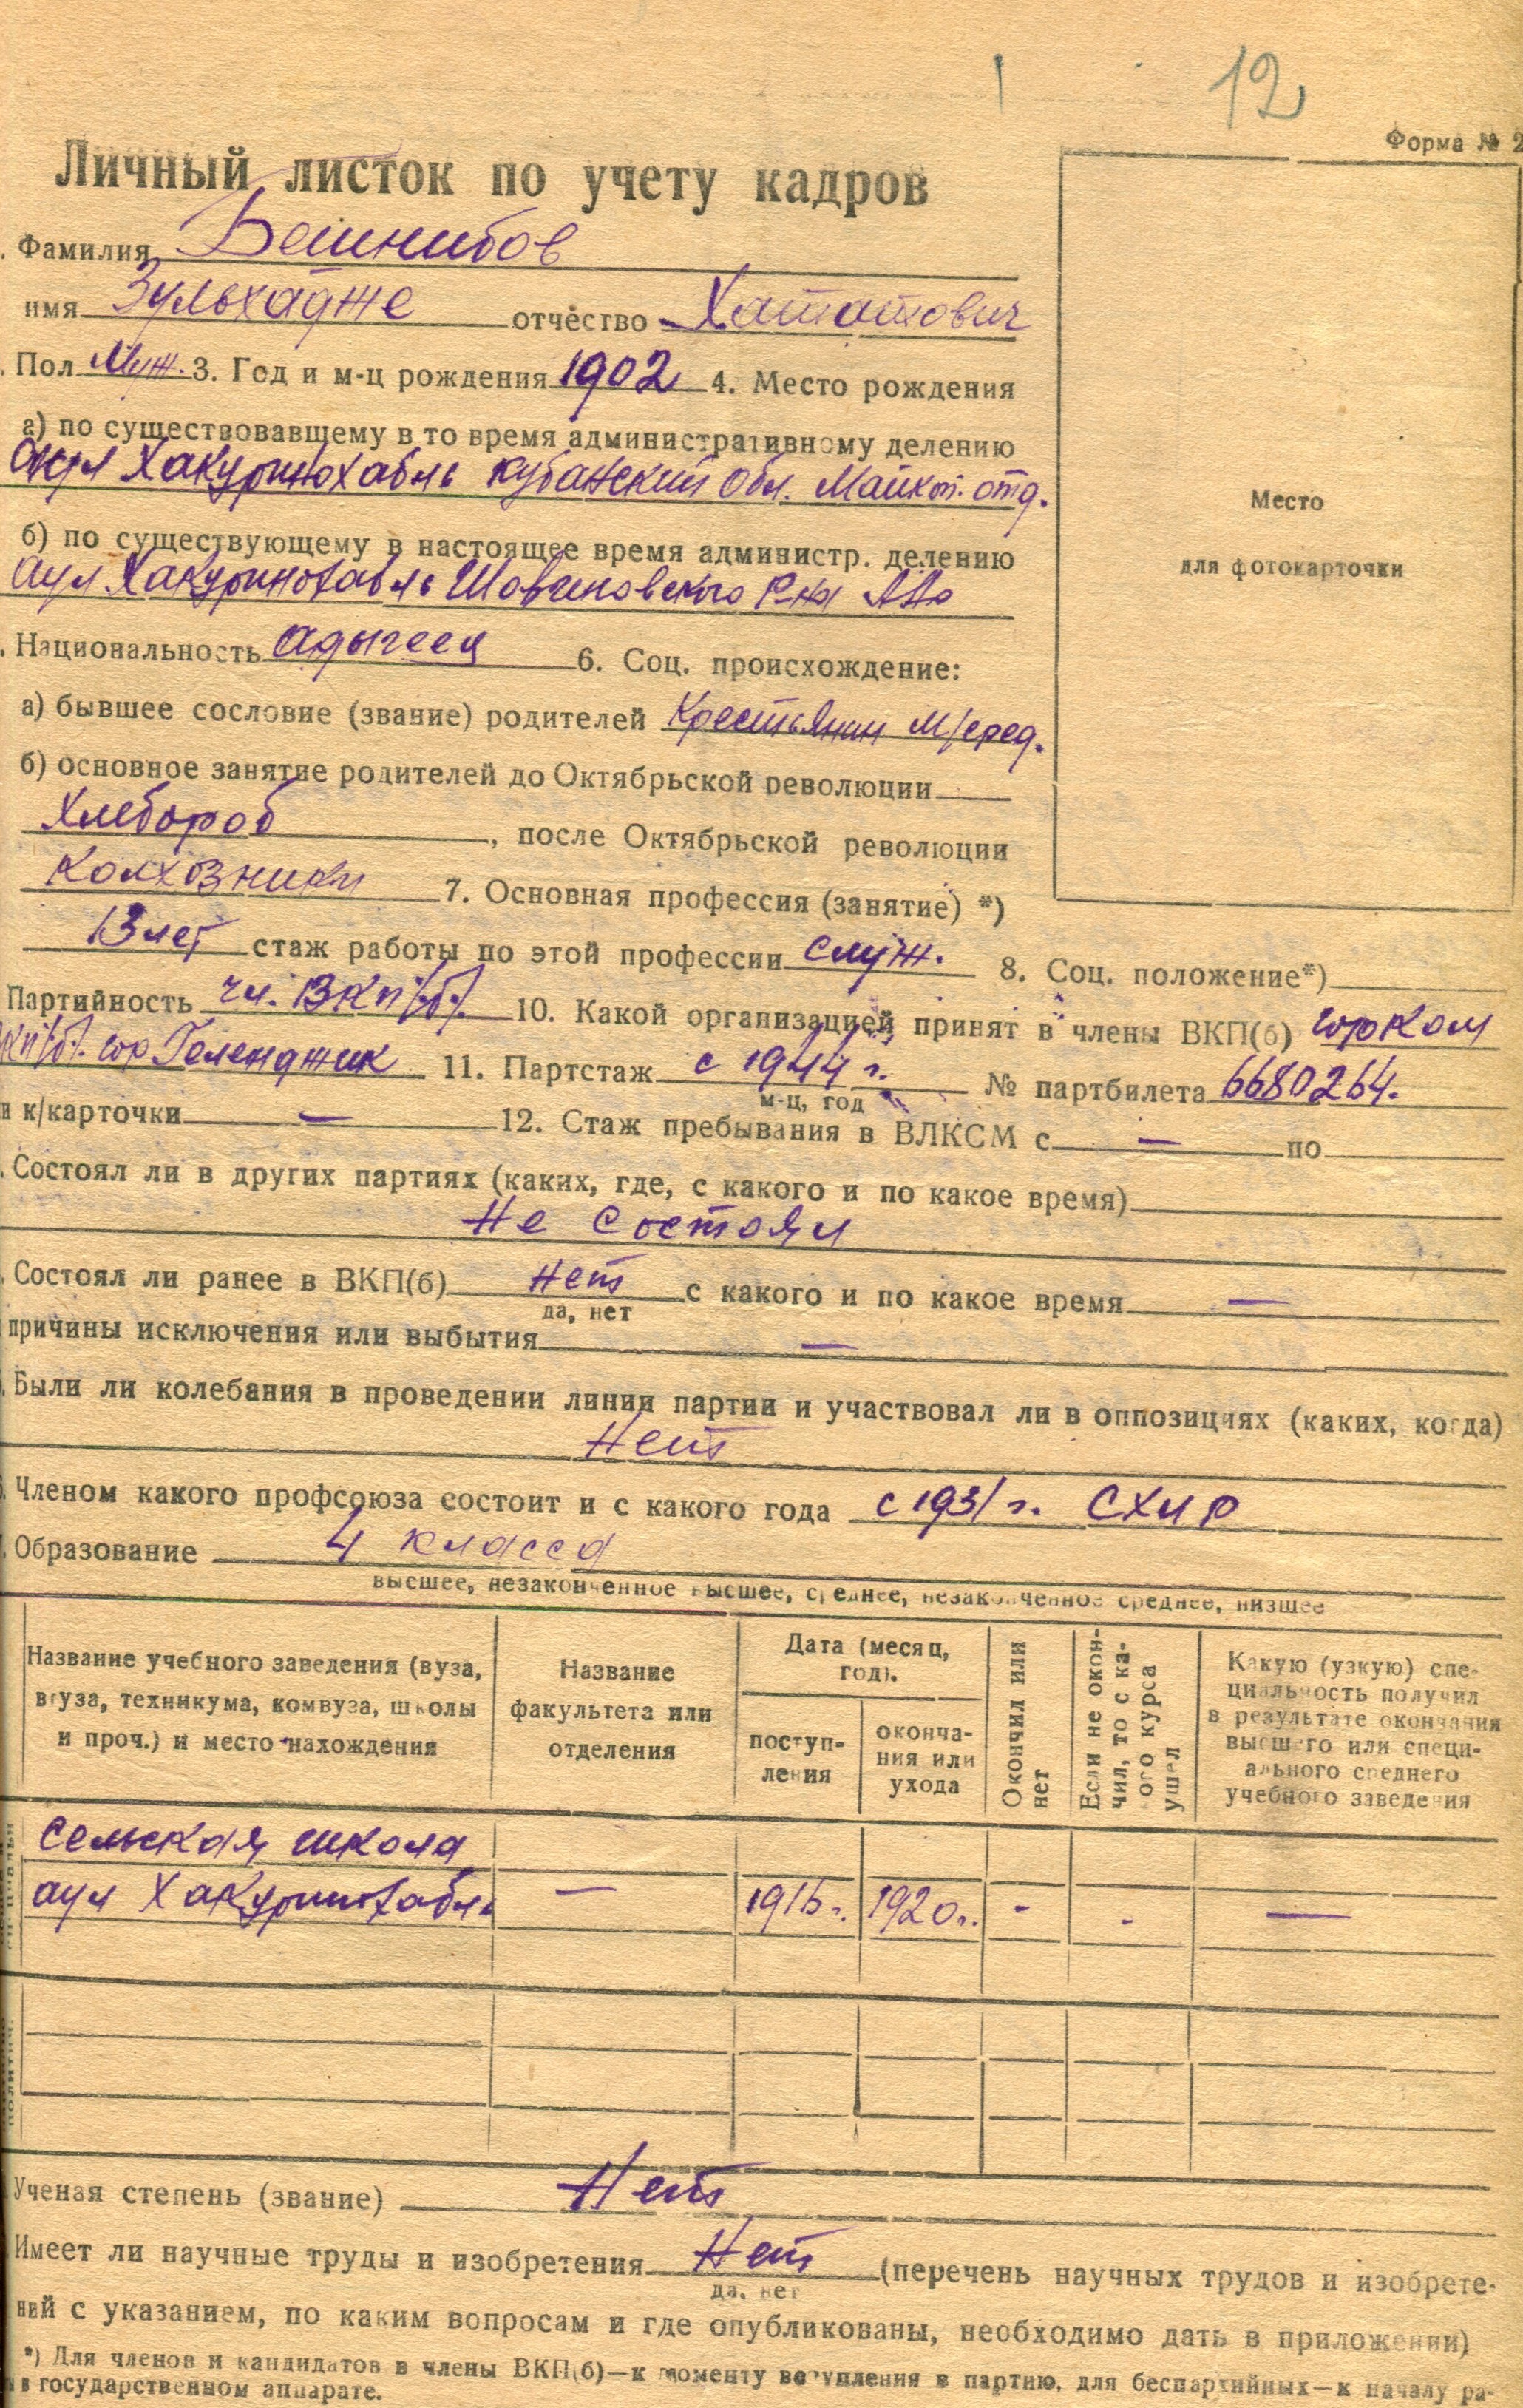 12
Форма № 2
Личный листок по учету кадров
Фамилия Бешкубов
имя Зульхадже отчество Хататович
Пол Муж. 3. Год и м-ц рождения 1902 4. Место рождения
а) по существовавшему в то время административному делению
аул Хакуринохабль Кубанский обл. Майкоп. отд.
б) по существующему в настоящее время администр. делению
аул Хакуринохабль Шовгеновского р-на ААо
Национальность адыгеец 6. Соц. происхождение:
а) бывшее сословие (звание) родителей Крестьянин м/серед.
б) основное занятие родителей до Октябрьской революции
Хлебороб, после Октябрьской революции
Колхозники 7. Основная профессия (занятие) *)
13 лет стаж работы по этой профессии служ. 8. Соц. положение*)
Партийность чл. ВКП/б/. 10. Какой организацией принят в члены ВКП(б) горком
ВКП/б/. гор Геленджик 11. Партстаж с 1944 г. № партбилета 6680264.
м-ц, год
и к/карточки — 12. Стаж пребывания в ВЛКСМ с — по
Состоял ли в других партиях (каких, где, с какого и по какое время)
Не состоял
Состоял ли ранее в ВКП(б) нет с какого и по какое время —
да, нет
причины исключения или выбытия —
Были ли колебания в проведении линии партии и участвовал ли в оппозициях (каких, когда)
Нет
Членом какого профсоюза состоит и с какого года с 1931 г. СХИР
Образование 4 класса
высшее, незаконченное высшее, среднее, незаконченное среднее, низшее
Название учебного заведения (вуза,
втуза, техникума, комвуза, школы
и проч.) и место нахождения
Название
факультета или
отделения
Дата (месяц,
год).
поступ-
ления
оконча-
ния или
ухода
Окончил или
нет
Если не окон-
чил, то с ка-
кого курса
ушел
Какую (узкую) спе-
циальность получил
в результате окончания
высшего или специ-
ального среднего
учебного заведения
сельская школа
аул Хакуринохабль — 1916 г. 1920 г. - - —
Ученая степень (звание) Нет
Имеет ли научные труды и изобретения Нет (перечень научных трудов и изобрете-
да, нет
ний с указанием, по каким вопросам и где опубликованы, необходимо дать в приложении)
*) Для членов и кандидатов в члены ВКП(б)—к моменту вступления в партию, для беспартийных—к началу ра-
в государственном аппарате.